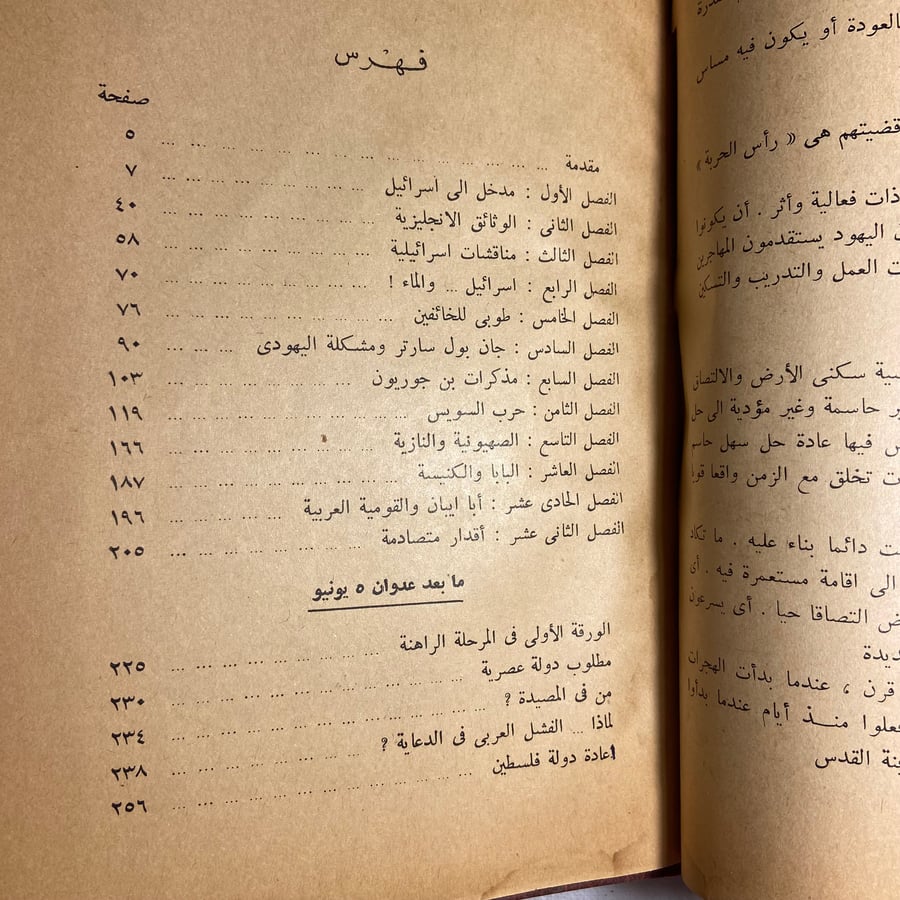 فهرس
صفحة
مقدمة ... ٥
الفصل الأول : مدخل الى اسرائيل ... ٧
الفصل الثانى : الوثائق الانجليزية ... ٤٠
الفصل الثالث : مناقشات اسرائيلية ... ٥٨
الفصل الرابع : اسرائيل ... والماء ! ... ٧٠
الفصل الخامس : طوبى للخائفين ... ٧٦
الفصل السادس : جان بول سارتر ومشكلة اليهودى ... ٩٠
الفصل السابع : مذكرات بن جوريون ... ١٠٣
الفصل الثامن : حرب السويس ... ١١٩
الفصل التاسع : الصهيونية والنازية ... ١٦٦
الفصل العاشر : البابا والكنيسة ... ١٨٧
الفصل الحادى عشر : أبا ايبان والقومية العربية ... ١٩٦
الفصل الثانى عشر : أقدار متصادمة ... ٢٠٥
ما بعد عدوان ٥ يونيو
الورقة الأولى فى المرحلة الراهنة ... ٢٢٥
مطلوب دولة عصرية ... ٢٣٠
من فى المصيدة ? ... ٢٣٤
لماذا ... الفشل العربى فى الدعاية ? ... ٢٣٨
اعادة دولة فلسطين ... ٢٥٦
بالعودة أو يكون فيه مساس
قضيتهم هى « رأس الحربة »
ذات فعالية وأثر . أن يكونوا
اليهود يستقدمون المهاجرين
العمل والتدريب والتسكين
سكنى الأرض والالتصاق
حاسمة وغير مؤدية الى حل
فيها عادة حل سهل حاسم
تخلق مع الزمن واقعا
دائما بناء عليه . ما تكاد
الى اقامة مستعمرة فيه . أى
التصاقا حيا . أى يسرعون
قرن ، عندما بدأت الهجرات
فعلوا منذ أيام عندما بدأوا
القدس